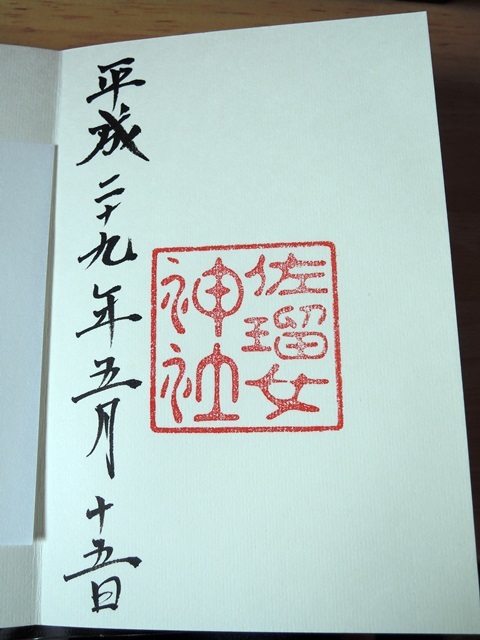 佐瑠女
神社
平成二十九年五月十五日